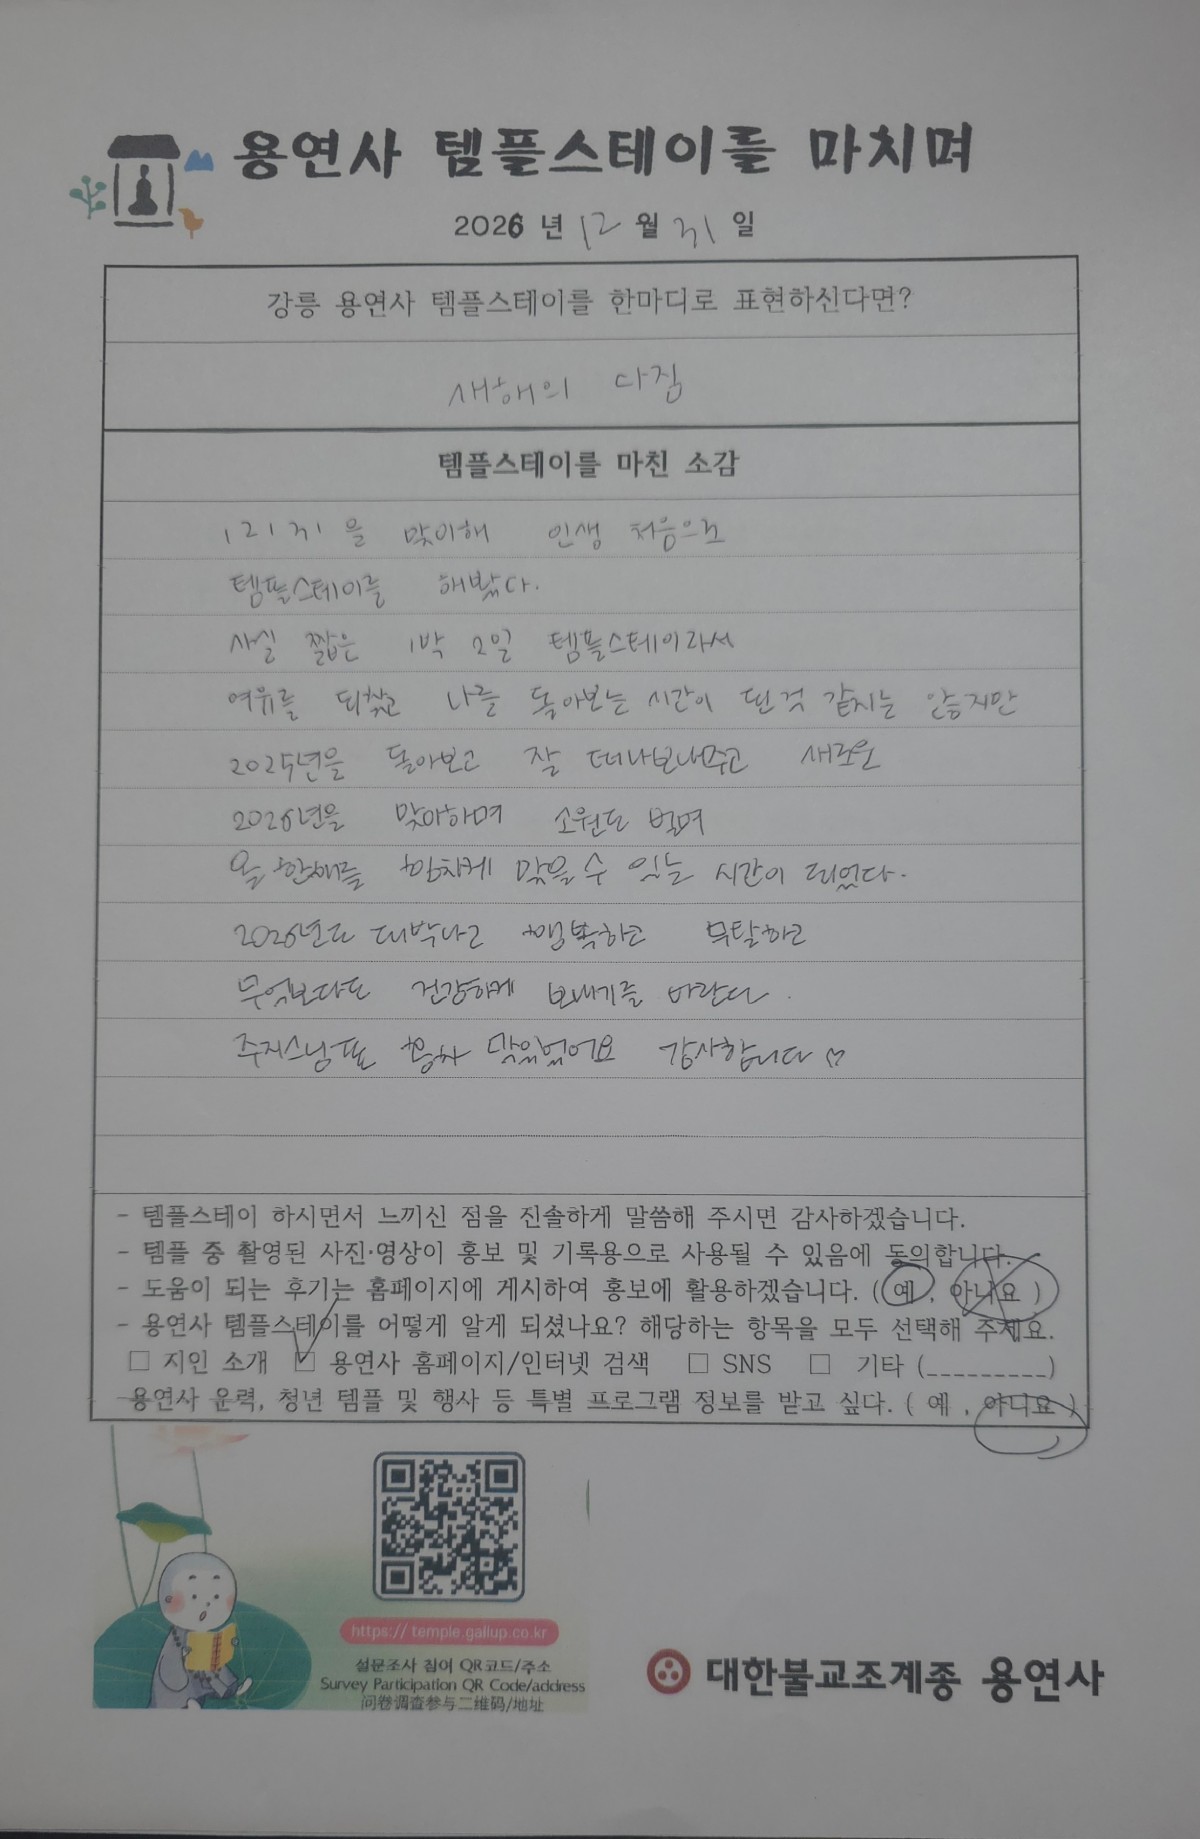 용연사 템플스테이를 마치며
2026 년 12 월 31 일
강릉 용연사 템플스테이를 한마디로 표현하신다면?
새해의 다짐
템플스테이를 마친 소감
1231을 맞이해 인생 처음으로
템플스테이를 해봤다.
사실 짧은 1박 2일 템플스테이라서
여유를 되찾고 나를 돌아보는 시간이 된것 같지는 않지만
2025년을 돌아보고 잘 떠나보내주고 새로운
2026년을 맞아하며 소원도 빌며
올 한해를 힘차게 맞을 수 있는 시간이 되었다.
2026년도 대박나고 행복하고 무탈하고
무엇보다도 건강하게 보내기를 바란다.
주지스님표 홍차 맛있었어요 감사합니다 ♡
- 템플스테이 하시면서 느끼신 점을 진솔하게 말씀해 주시면 감사하겠습니다.
- 템플 중 촬영된 사진·영상이 홍보 및 기록용으로 사용될 수 있음에 동의합니다.
- 도움이 되는 후기는 홈페이지에 게시하여 홍보에 활용하겠습니다. ( 예 , 아니요 )
- 용연사 템플스테이를 어떻게 알게 되셨나요? 해당하는 항목을 모두 선택해 주세요.
□ 지인 소개 ☑ 용연사 홈페이지/인터넷 검색 □ SNS □ 기타 (_________)
용연사 운력, 청년 템플 및 행사 등 특별 프로그램 정보를 받고 싶다. ( 예 , 아니요 )
https:// temple.gallup.co.kr
설문조사 참여 QR코드/주소
Survey Participation QR Code/address
问卷调查参与二维码/地址
대한불교조계종 용연사